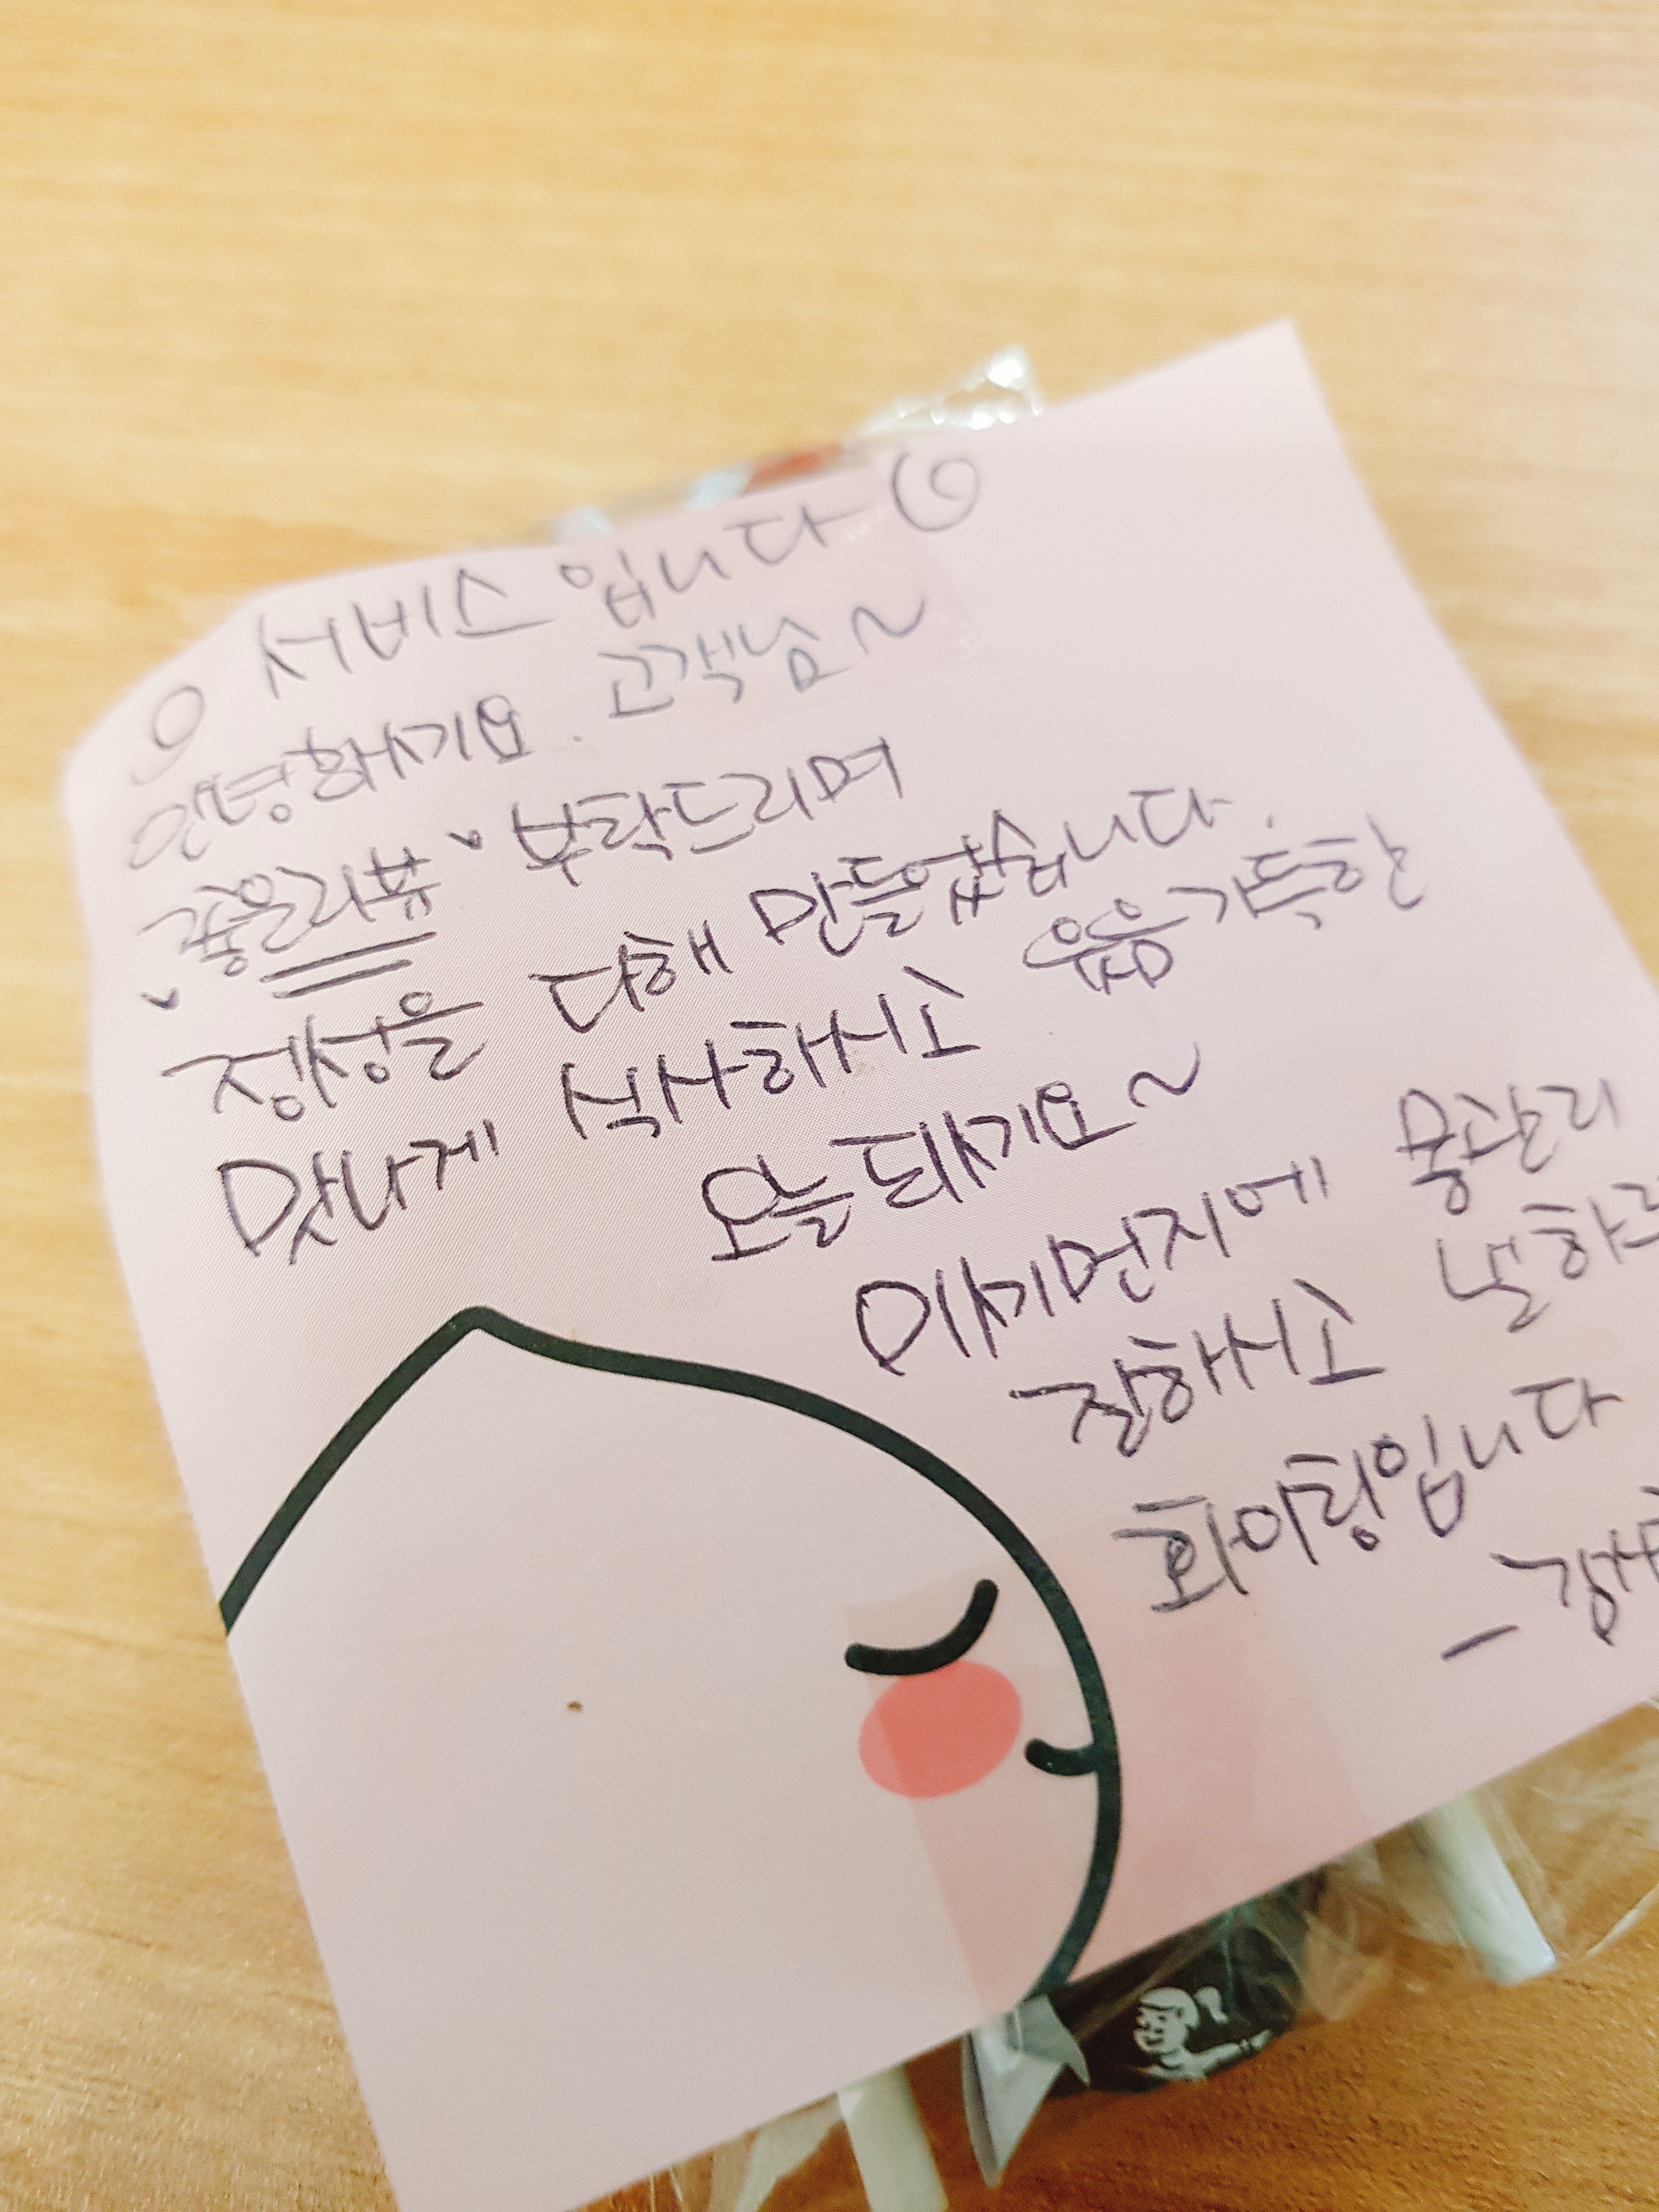 서비스입니다
안녕하세요. 고객님~
좋은리뷰 부탁드리며
정성을 다해 만들었습니다.
맛나게 식사하시고 웃음가득한
오늘되세요~
미세먼지에 몸관리
잘하시고
화이팅입니다